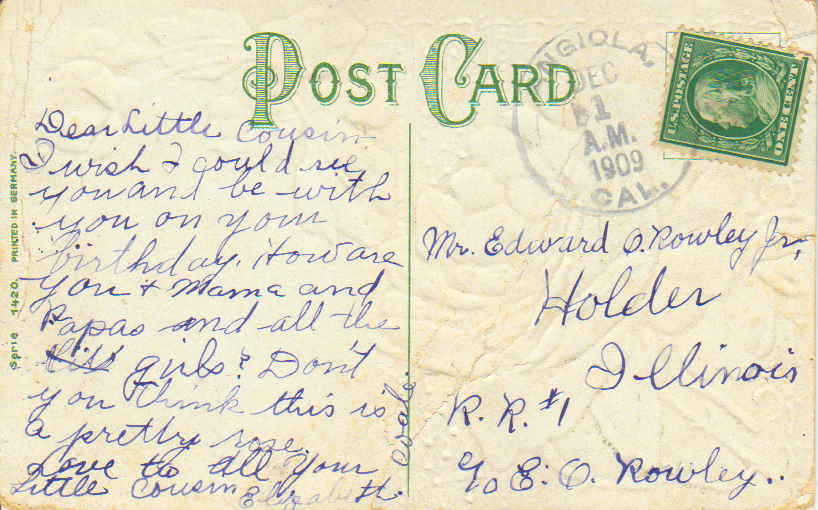 POST CARD
ANGIOLA,
DEC
1
A.M.
1909
CAL.
U.S. POSTAGE
ONE CENT
Dear Little Cousin
I wish I could see
you and be with
you on your
birthday. How are
you & Mama and
Papas and all the
girls? Don't
you think this is
a pretty rose.
Love to all your
Little Cousin Elizabeth.
Mr. Edward O. Rowley Jr,
Holder
Illinois
R. R. #1
c/o E. O. Rowley..
Serie 1420. PRINTED IN GERMANY.